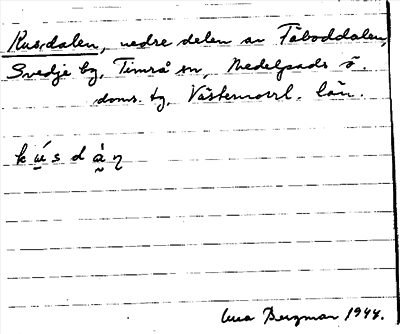 Kusdalen, nedre delen av Fäboddalen,
Svedje by, Timrå sn, Medelpads ö.
doms. tg, Västernorrl. län.
k ú s d à n
Bergman 1944.